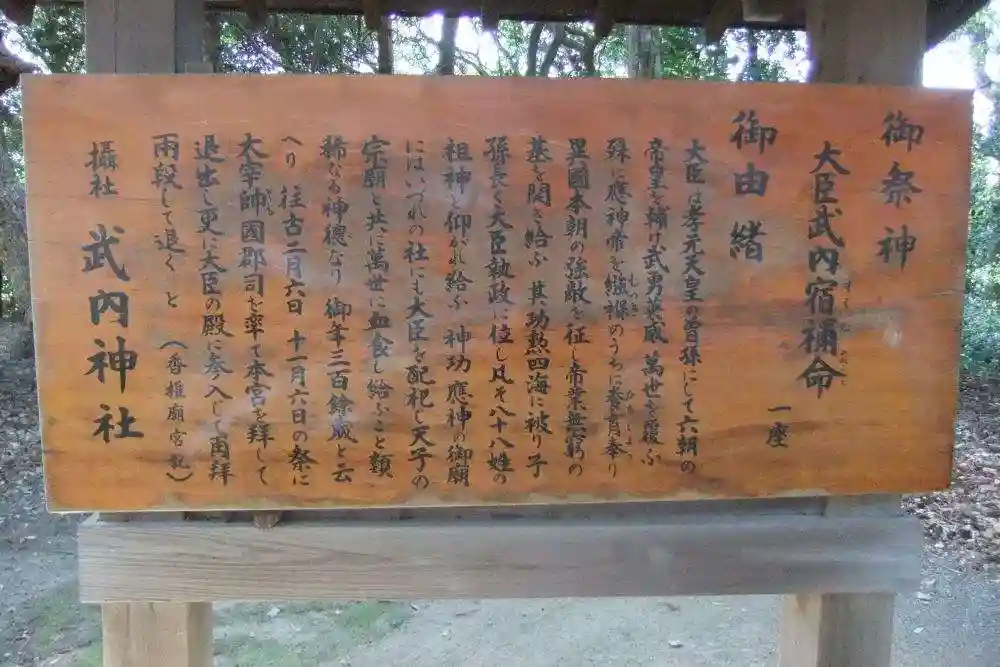 御祭神
大臣武内宿禰命 一座
すくね みこと
御由緒
大臣は孝元天皇の曽孫にして六朝の
帝皇を輔け武勇英威萬世を覆ふ
殊に應神帝を繦褓のうちに養育奉り
むつき
異國本朝の強敵を征し帝業無窮の
基を開き給ふ 其功勲四海に被り子
孫長く大臣執政に位し凡そ八十八姓の
祖神と仰がれ給ふ 神功應神の御廟
にはいづれの社にも大臣を配祀し天子の
宗廟と共に萬世に血食し給ふこと類
稀なる神德なり 御年三百餘歳と云
へり 往古二月六日 十一月六日の祭に
太宰帥國郡司を率て本宮を拝して
退出し更に大臣の殿に参入して両拝
両段して退く と (香椎廟宮記)
攝社 武内神社